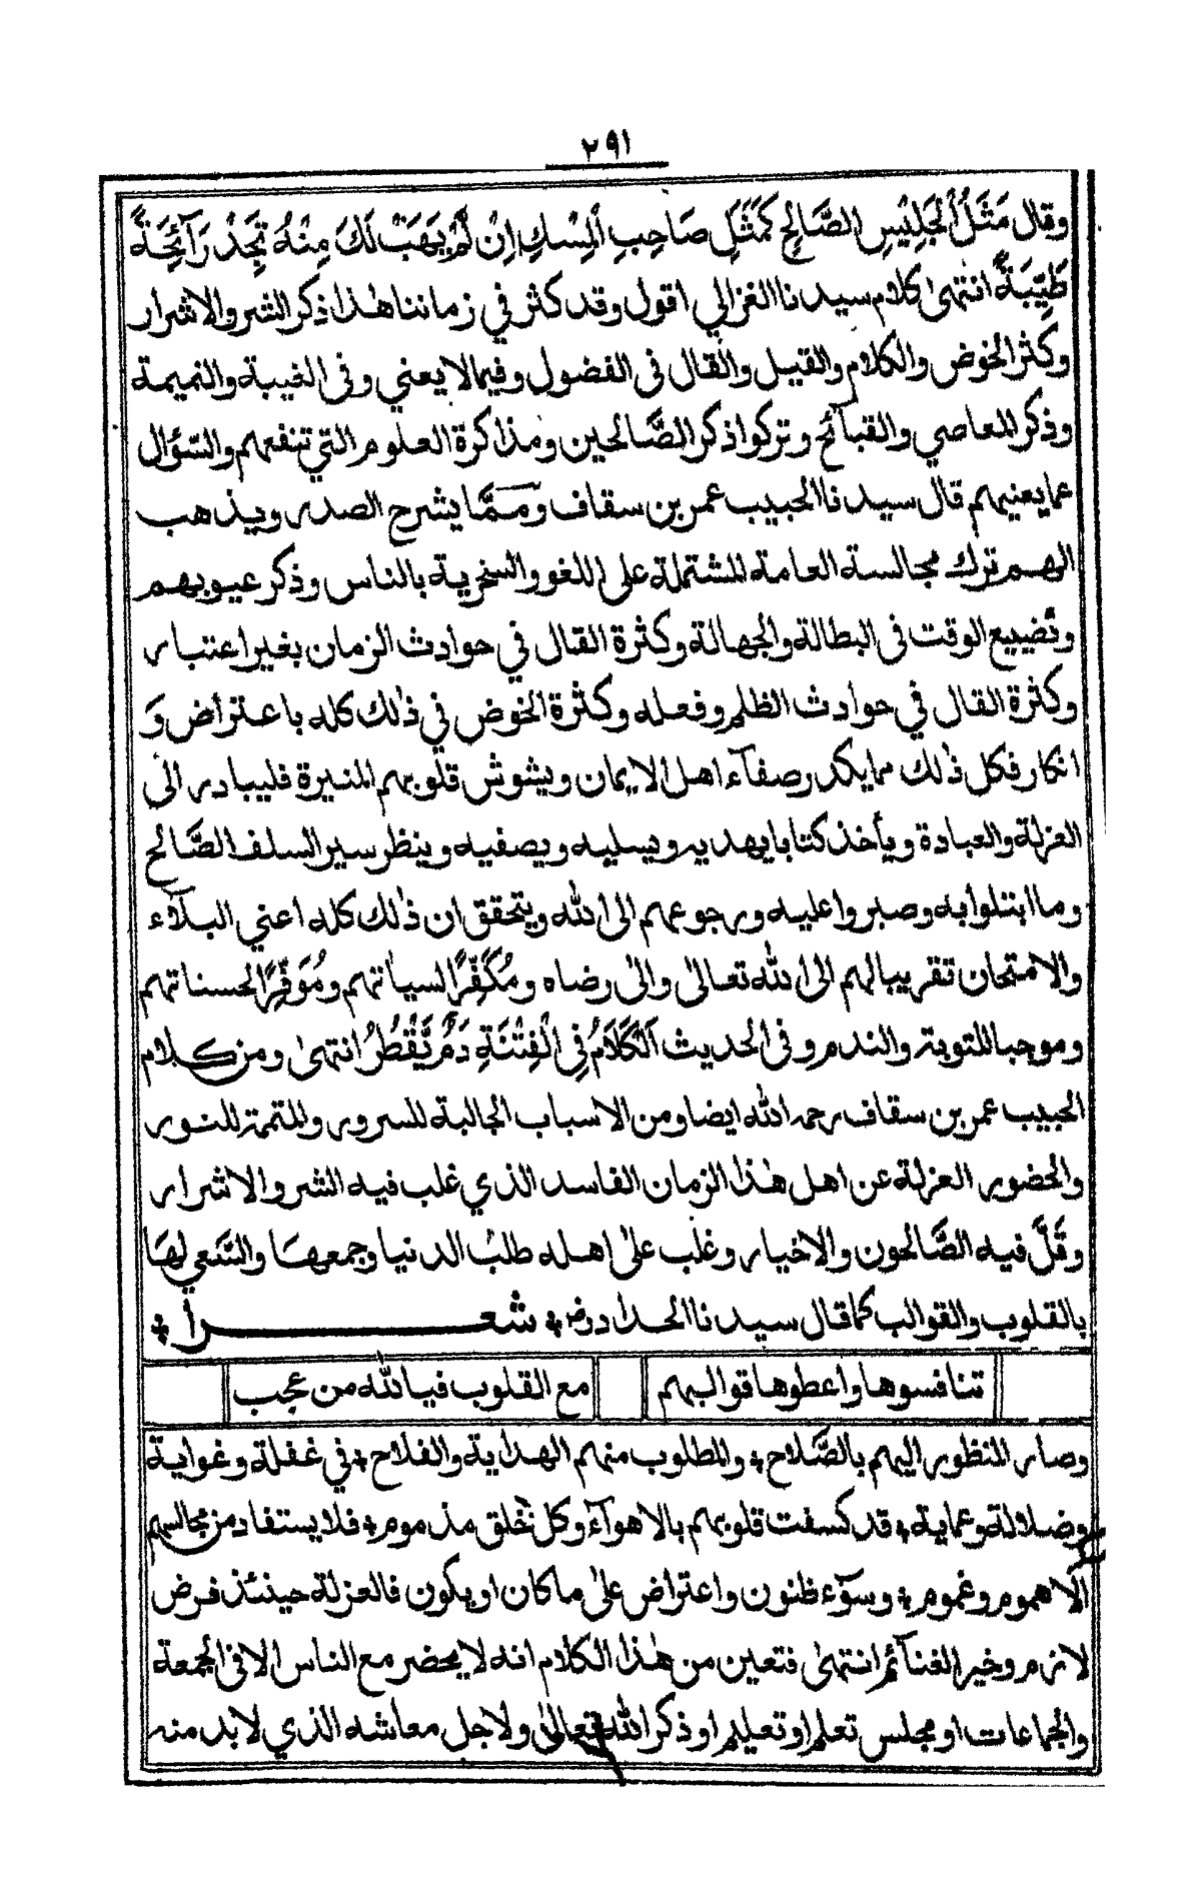 ٢٩١
وقال مَثَلُ الْجَلِيْسِ الصَّالِحِ كَمَثَلِ صَاحِبِ الْمِسْكِ اِنْ لَمْ يَهَبْ لَكَ مِنْهُ تَجِدْ رَآئِحَةً
طَيِّبَةً انتهىٰ كلام سيدنا الغزالي اقول وقد كثر في زماننا هٰذا ذكر الشر والاشرار
وكثر الخوض والكلام والقيل والقال فى الفضول وفيما لا يعني وفى الغيبة والنميمة
وذكر المعاصي والقبآئح وتركوا ذكر الصَّالحين ومذاكرة العلوم التي تنفعهم والسّؤال
عما يعنيهم قال سيدنا الحبيب عمر بن سقاف ومِمَّا يشرح الصدر ويذهب
الهم ترك مجالسة العامة المشتملة على اللغو والسخرية بالناس وذكر عيوبهم
وتضييع الوقت فى البطالة والجهالة وكثرة القال في حوادث الزمان بغير اعتبار
وكثرة القال في حوادث الظلم وفعله وكثرة الخوض في ذٰلك كله باعتراض وَ
انكار فكل ذٰلك مما يكدر صفآء اهل الايمان ويشوش قلوبهم المنيرة فليبادر الى
العزلة والعبادة ويأخذ كتابا يهديه ويسليه ويصفيه وينظر سير السلف الصَّالح
وما ابتلوا به وصبروا عليه ورجوعهم الى الله ويتحقق ان ذٰلك كله اعني البلآء
والامتحان تقريبا لهم الى الله تعالىٰ والىٰ رضاه ومُكَفِّرًا لسياتهم ومُوَفِّرًا لحسناتهم
وموجبا للتوبة والندم وفى الحديث اَلْكَلَامُ فِى الْفِتْنَةِ دَمٌ يَّقْطُرُ انتهىٰ ومن كلام
الحبيب عمر بن سقاف رحمه الله ايضا ومن الاسباب الجالبة للسرور والمتممة للنور
والحضور العزلة عن اهل هٰذا الزمان الفاسد الذي غلب فيه الشر والاشرار
وقَلَّ فيه الصَّالحون والاخيار وغلب علىٰ اهله طلب الدنيا وجمعها والسَّعي لها
بالقلوب والقوالب كما قال سيدنا الحداد رض ؞ شعرا ؞
تنافسوها واعطوها قوالبهم مع القلوب فيا لله من عجب
وصار المنظور اليهم بالصَّلاح ؞ والمطلوب منهم الهداية والفلاح ؞ في غفلة وغواية
وضلالة وعماية ؞ قد كسفت قلوبهم بالاهوآء وكل خلق مذموم ؞ فلا يستفاد من مجالسهم
الا هموم وغموم ؞ وسوٓء ظنون واعتراض علىٰ ما كان او يكون فالعزلة حينئذ فرض
لازم وخير الغنآئم انتهىٰ فتعين من هٰذا الكلام انه لا يحضر مع الناس الا فى الجمعة
والجماعات او مجلس تعلم او تعليم او ذكر الله تعالىٰ ولاجل معاشه الذي لا بد منه